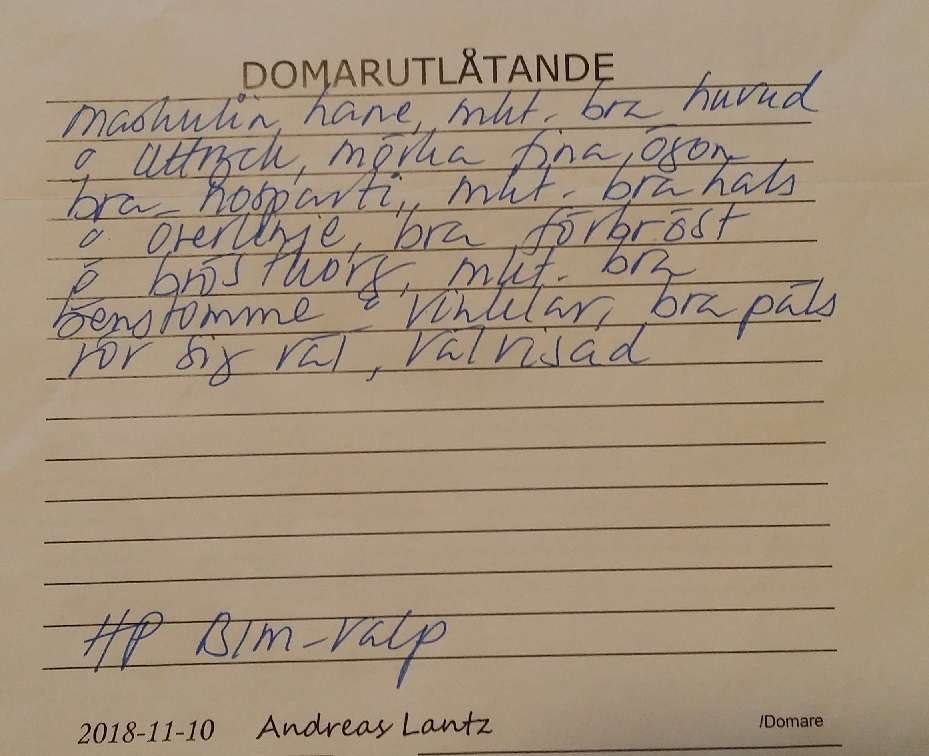 DOMARUTLÅTANDE
maskulin hane, mkt. bra huvud
å uttryck, mörka fina ögon
bra nosparti, mkt. bra hals
å överlinje, bra förbröst
å bröstkorg, mkt. bra
benstomme å vinklar, bra päls
rör sig väl, välvisad
HP BIM-valp
2018-11-10 Andreas Lantz /Domare